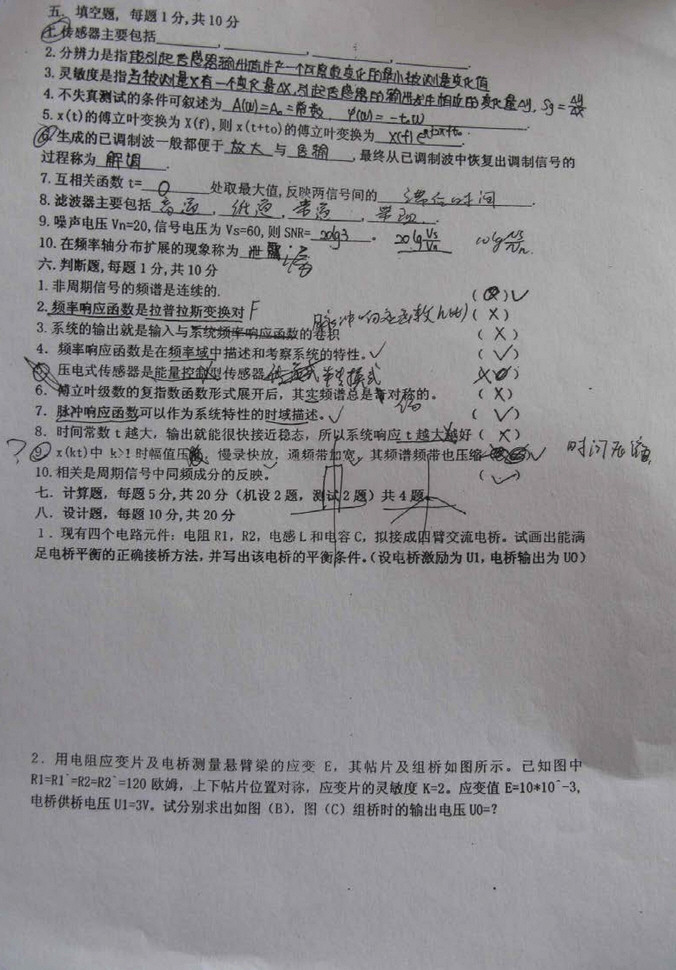 五、填空题, 每题1分,共10分
1.传感器主要包括
2.分辨力是指能引起传感器输出值产生一个可察觉变化的最小被测量变化值
3.灵敏度是指当被测量X有一个变化量ΔX,引起传感器的输出发生相应的变化量Δy, Sg=Δy/Δx
4.不失真测试的条件可叙述为 A(ω)=A₀=常数 φ(ω)=-t₀ω
5.x(t)的傅立叶变换为X(f),则x(t+to)的傅立叶变换为 X(f)
6.生成的已调制波一般都便于放大与传输,最终从已调制波中恢复出调制信号的
过程称为 解调 .
7.互相关函数t= 0 处取最大值,反映两信号间的滞后时间.
8.滤波器主要包括高通, 低通, 带通, 带阻.
9.噪声电压Vn=20,信号电压为Vs=60,则SNR= 20lg3 。 20lg Vs/Vn
10.在频率轴分布扩展的现象称为 泄漏
六.判断题,每题1分,共10分
1.非周期信号的频谱是连续的. ( )√
2.频率响应函数是拉普拉斯变换对 F (×)
3.系统的输出就是输入与系统频率响应函数的卷积 脉冲响应函数h(t) (×)
4. 频率响应函数是在频率域中描述和考察系统的特性。√ (√)
5. 压电式传感器是能量控制型传感器
6. 傅立叶级数的复指数函数形式展开后，其实频谱总是奇对称的。 偶 (×)
7. 脉冲响应函数可以作为系统特性的时域描述。√ (√)
8. 时间常数t越大，输出就能很快接近稳态，所以系统响应t越大越好 (×)
? 9. x(kt)中 k>1时幅值压缩，慢录快放，通频带加宽，其频谱频带也压缩 时间压缩
10.相关是周期信号中同频成分的反映。 (√)
七．计算题，每题5分,共20分（机设2题，测试2题）共4题
八．设计题，每题10分,共20分
1．现有四个电路元件：电阻R1，R2，电感L和电容C，拟接成四臂交流电桥。试画出能满
足电桥平衡的正确接桥方法，并写出该电桥的平衡条件。（设电桥激励为U1，电桥输出为U0）
2．用电阻应变片及电桥测量悬臂梁的应变E，其帖片及组桥如图所示。已知图中
R1=R1`=R2=R2`=120欧姆，上下帖片位置对称，应变片的灵敏度K=2。应变值E=10*10^-3,
电桥供桥电压U1=3V。试分别求出如图（B），图（C）组桥时的输出电压U0=?